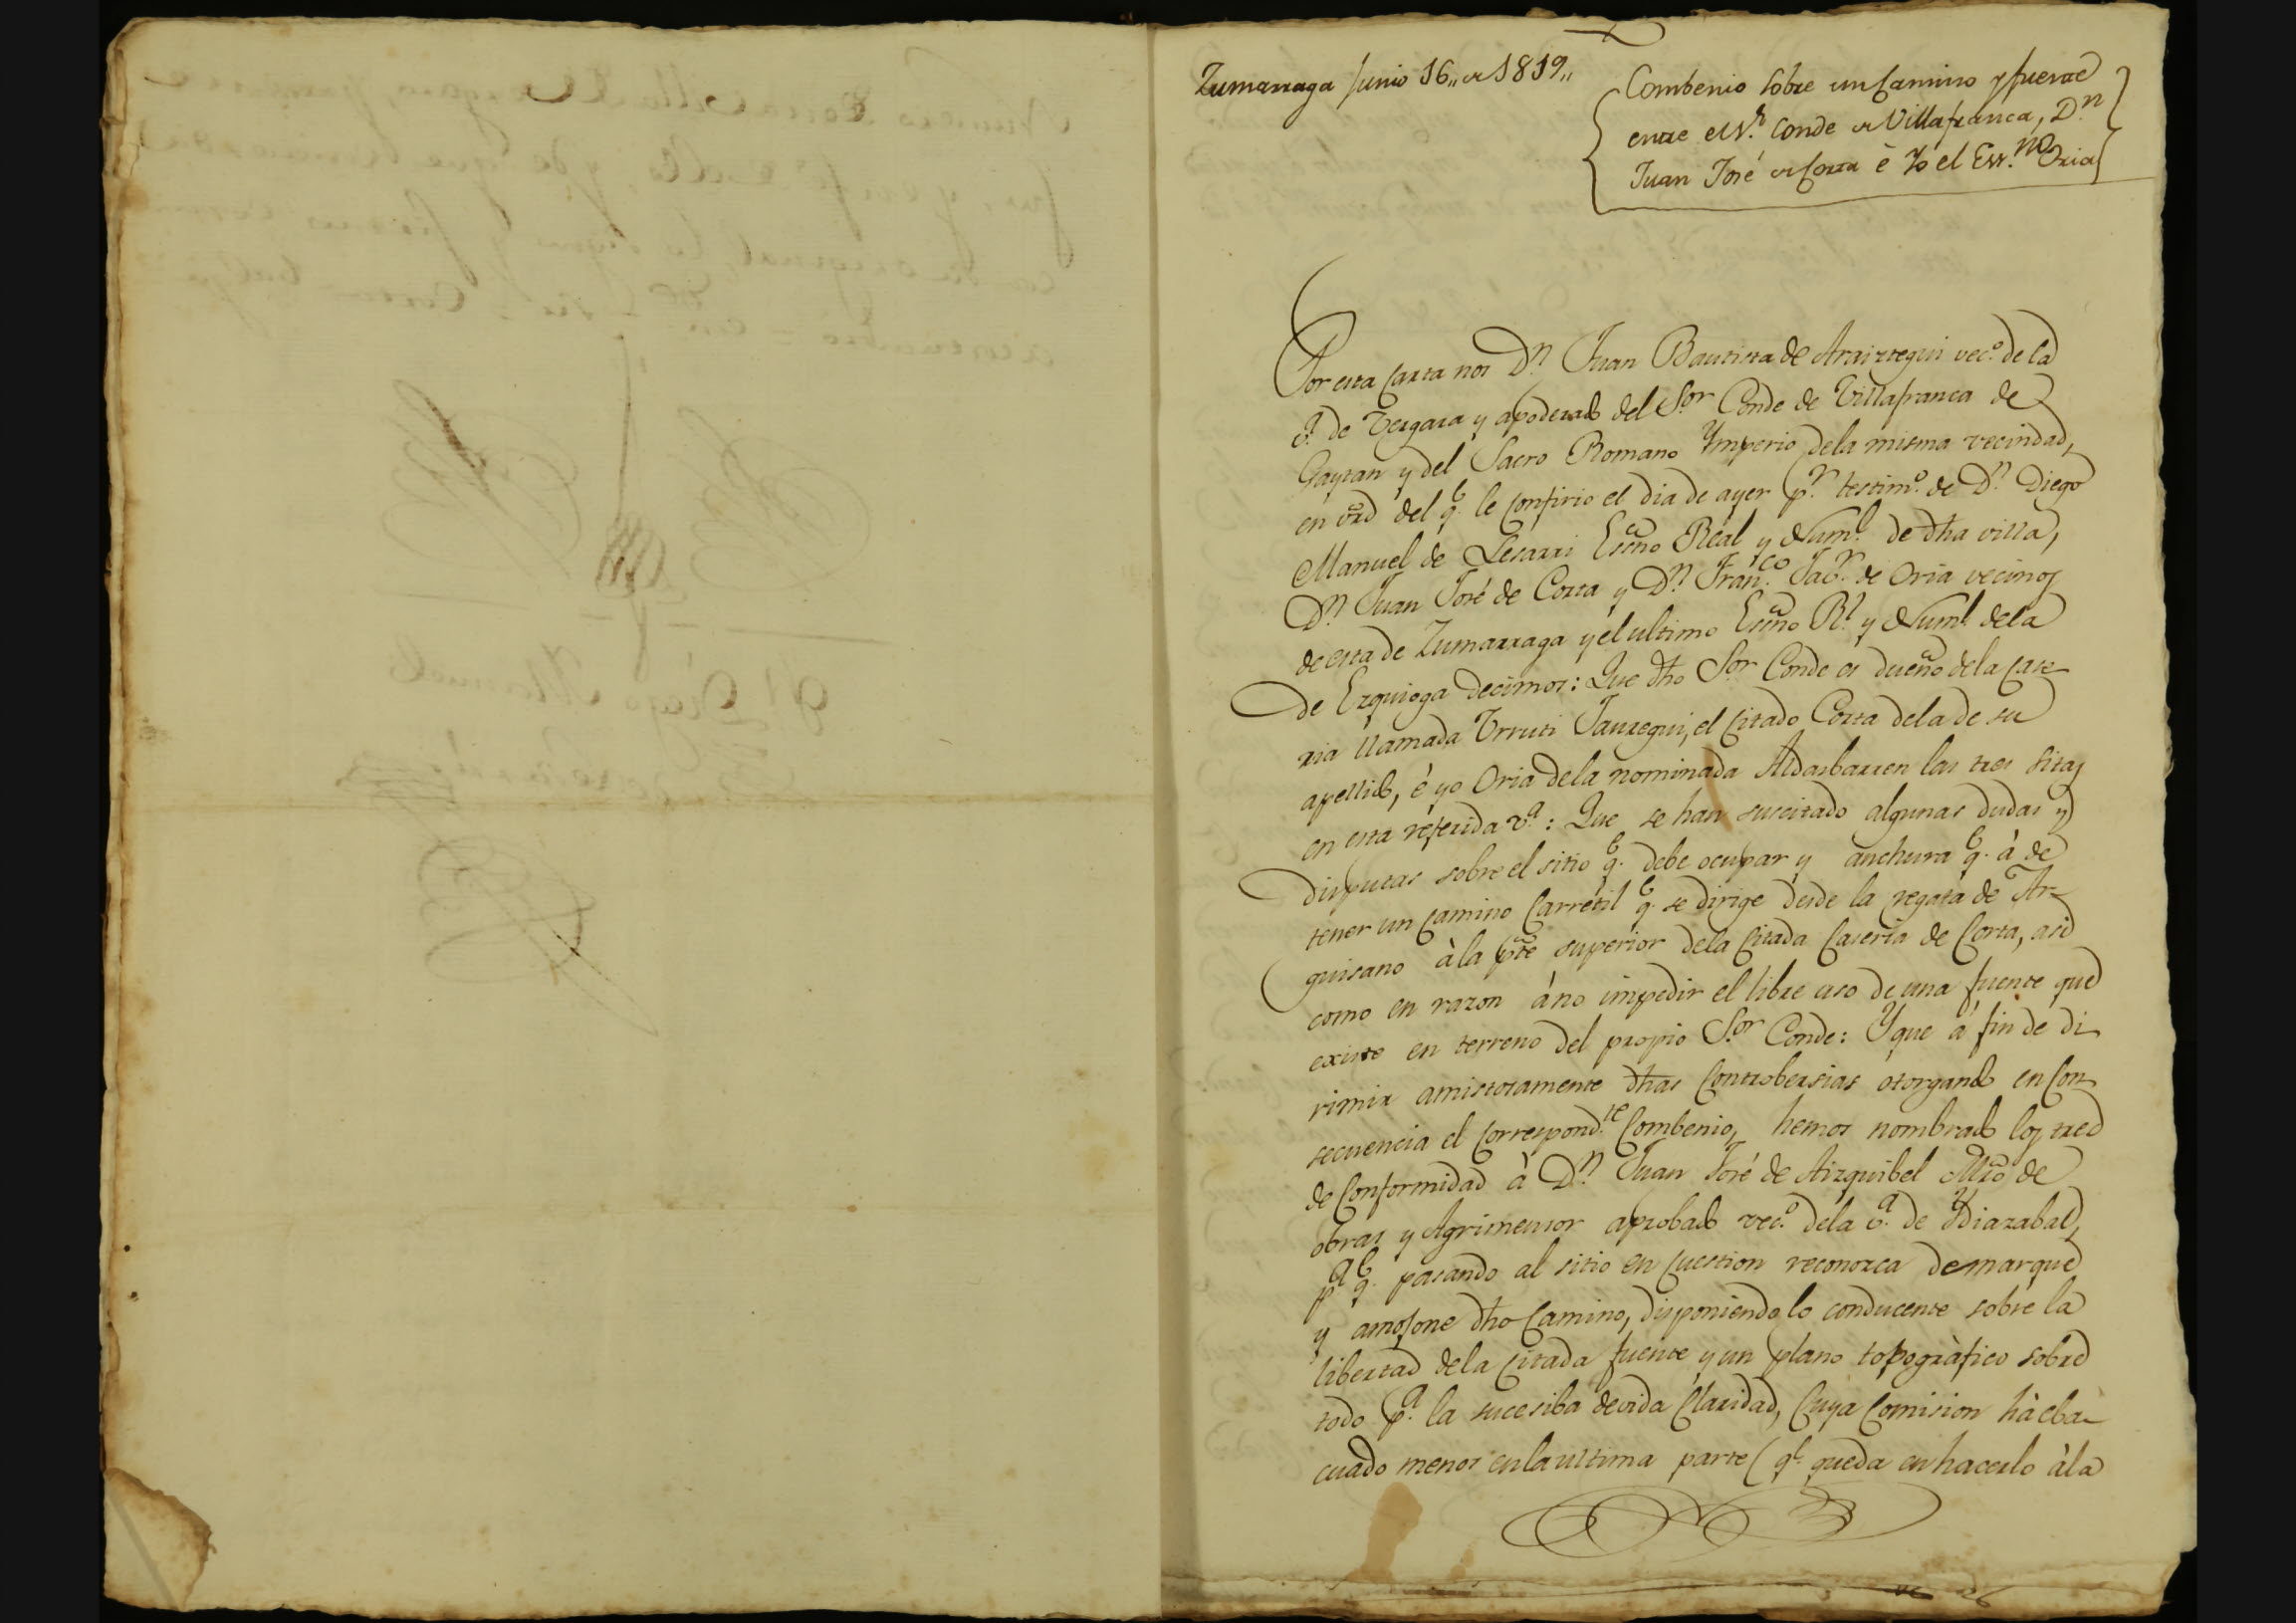 Zumarraga Junio 16,, de 1819,,
Combenio sobre un Camino y fuente
entre el Sr. Conde de Villafranca, Dn.
Juan José de Corta è Yo el Essno. Oria
Por esta Carta nos Dn. Juan Bautista de Araiztegui veco. de la
va. de Vergara y apoderado del Sor. Conde de Villafranca de
Gaytan y del Sacro Romano Ymperio de la misma vecindad,
en vrd del q. le Confirio el dia de ayer pr. testimo. de Dn. Diego
Manuel de Lesarri Esno Real y Numl. de dha villa,
Dn. Juan José de Corta y Dn. Franco. Jabr. de Oria vecinos
de esta de Zumarraga y el ultimo Esno Rl. y Numl. de la
de Ezquioga decimos: Que dho Sor Conde es dueño de la Case-
ria llamada Urruti Jauregui, el Citado Corta de la de su
apellido, è yo Oria de la nominada Aldasbarren las tres sitas
en esta referida va.: Que se han suscitado algunas dudas y
disputas sobre el sitio q. debe ocupar y anchura q. à de
tener un Camino Carretil q. se dirige desde la regata de Ar-
guisano à la pte superior de la Citada Caseria de Corta, asi
como en razon à no impedir el libre uso de una fuente que
existe en terreno del propio Sor. Conde: Y que à fin de di-
rimir amistosamente dhas Controbersias otorgando en Con-
secuencia el Correspondte. Combenio, hemos nombrado los tres
de Conformidad à Dn. Juan José de Aizquibel Mro de
obras y Agrimensor aprobado veco. de la va. de Ydiazabal,
pa. q. pasando al sitio en Cuestion reconozca demarque
y amojone dho Camino, disponiendo lo conducente sobre la
libertad de la Citada fuente y un plano topogràfico sobre
todo pa. la sucesiba devida Claridad, Cuya Comision hà eba-
cuado menos en la ultima parte (q. queda en hacerlo à la